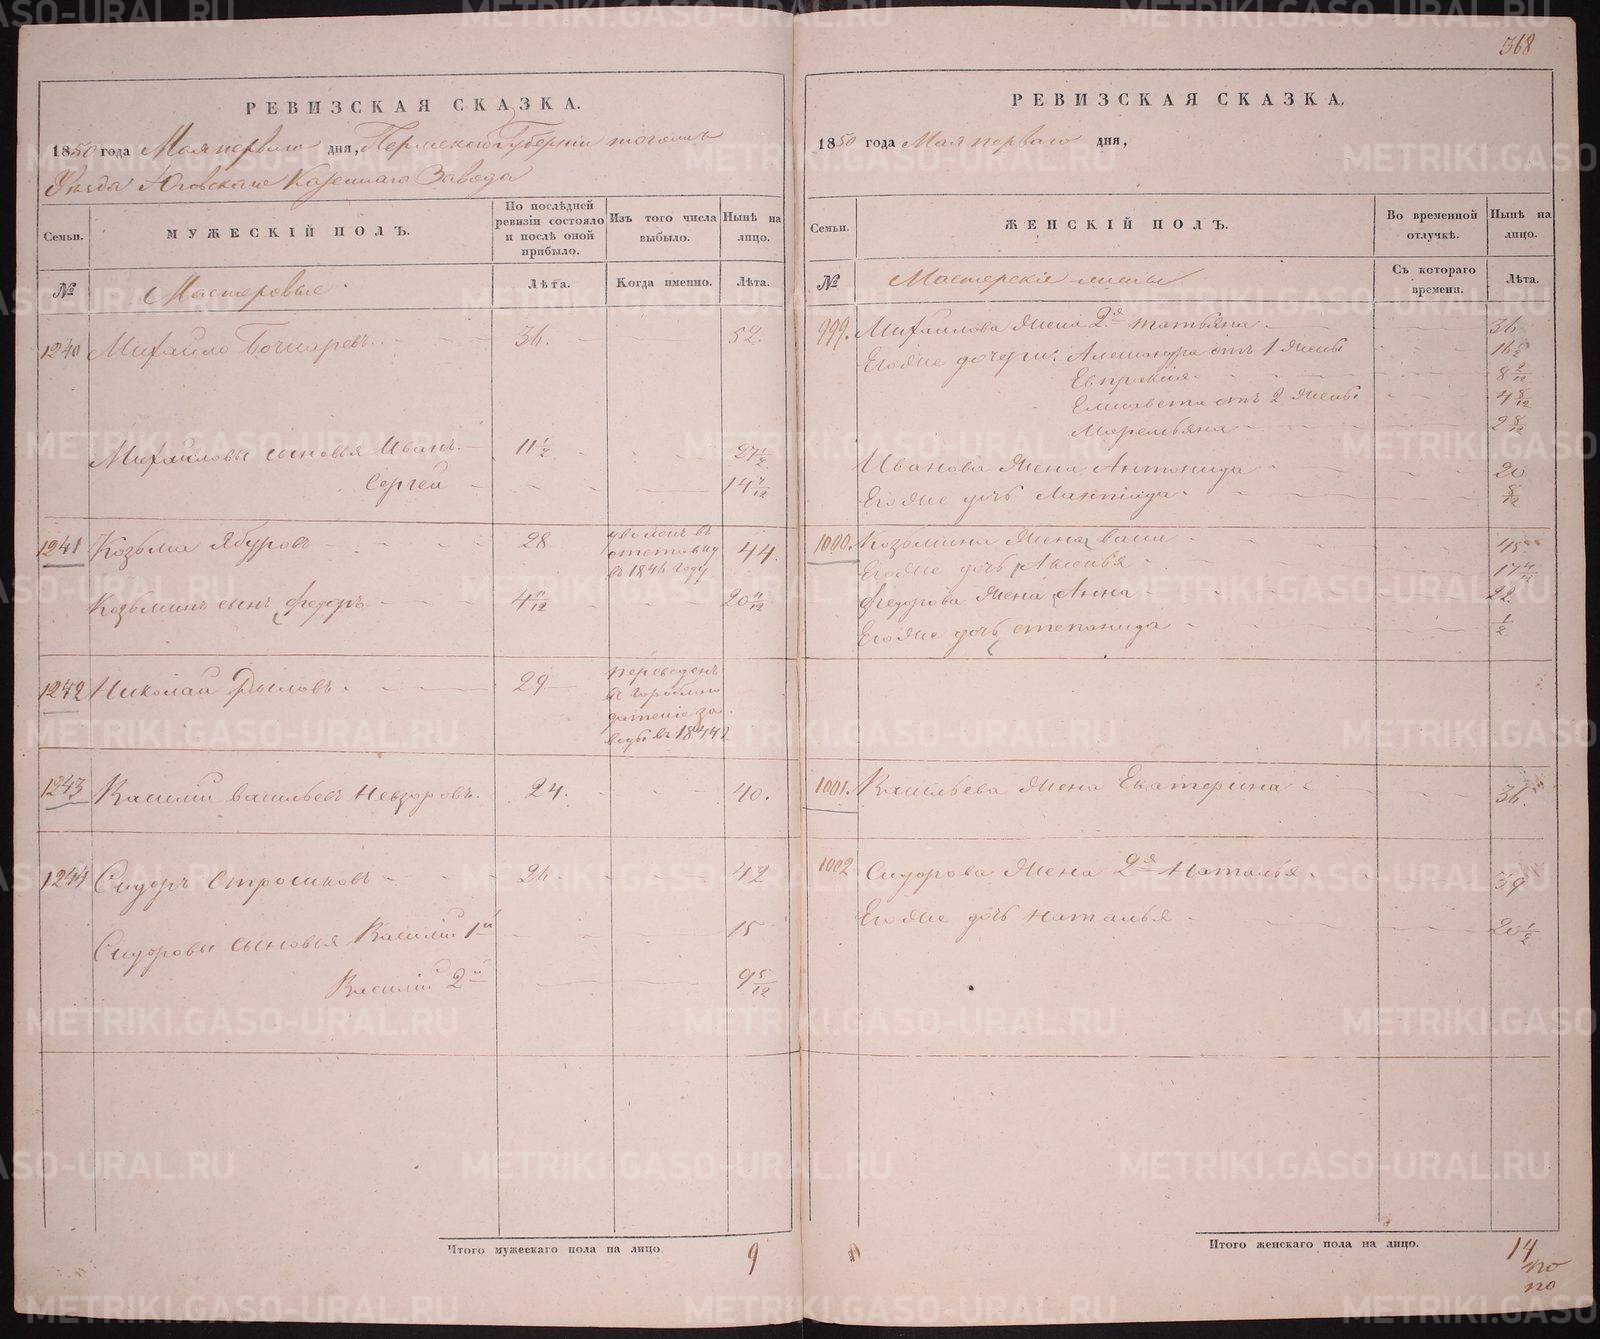 568
РЕВИЗСКАЯ СКАЗКА.
1850 года Мая перваго дня, Пермской Губернии тогожъ
Уезда Юговскаго Казеннаго Завода
Семьи.
МУЖЕСКІЙ ПОЛЪ.
По послѣдней ревизіи состояло и послѣ оной прибыло.
Изъ того числа выбыло.
Нынѣ на лицо.
№
Мастеровые
Лѣта.
Когда именно.
Лѣта.
1240 Михайло Бочкаревъ 36. 52.
Михайловы сыновья Иванъ 11 1/2 27 1/2
Сергей 14 7/12
1241 Козьма Ябуровъ 28 уволенъ в отставку в 1846 году 44
Козьминъ сынъ Федоръ 4 11/12 20 11/12
1242 Николай Рыловъ 29 переведенъ в заводы в 1844
1243 Василий васильевъ Невзоровъ. 24. 40.
1244 Сидоръ Строшковъ 26. 42
Сидоровы сыновья Василий 1й 15
Василий 2й 9 5/12
Итого мужескаго пола на лицо 9
РЕВИЗСКАЯ СКАЗКА.
1850 года Мая перваго дня,
Семьи.
ЖЕНСКІЙ ПОЛЪ.
Во временной отлучкѣ.
Нынѣ на лицо.
№
Мастерские жены
Съ котораго времени.
Лѣта.
999. Михайлова жена 2я татьяна 36
Его же дочери: Александра отъ 1 жены 16 5/12
Евпраксия 8 2/12
Елисавета отъ 2 жены 4 8/12
Маремьяна 2 8/12
Иванова жена Антонида 20
Его же дочь 8/12
1000. Козьмина жена 45
Его же дочь Аксинья 17 4/12
Федорова жена Анна 22
Его же дочь степанида 1/2
1001. Васильева жена Екатерина 36.
1002 Сидорова жена 2я Наталья 39
Его же дочь наталья 20 1/2
Итого женскаго пола на лицо. 14
METRIKI.GASO-URAL.RU